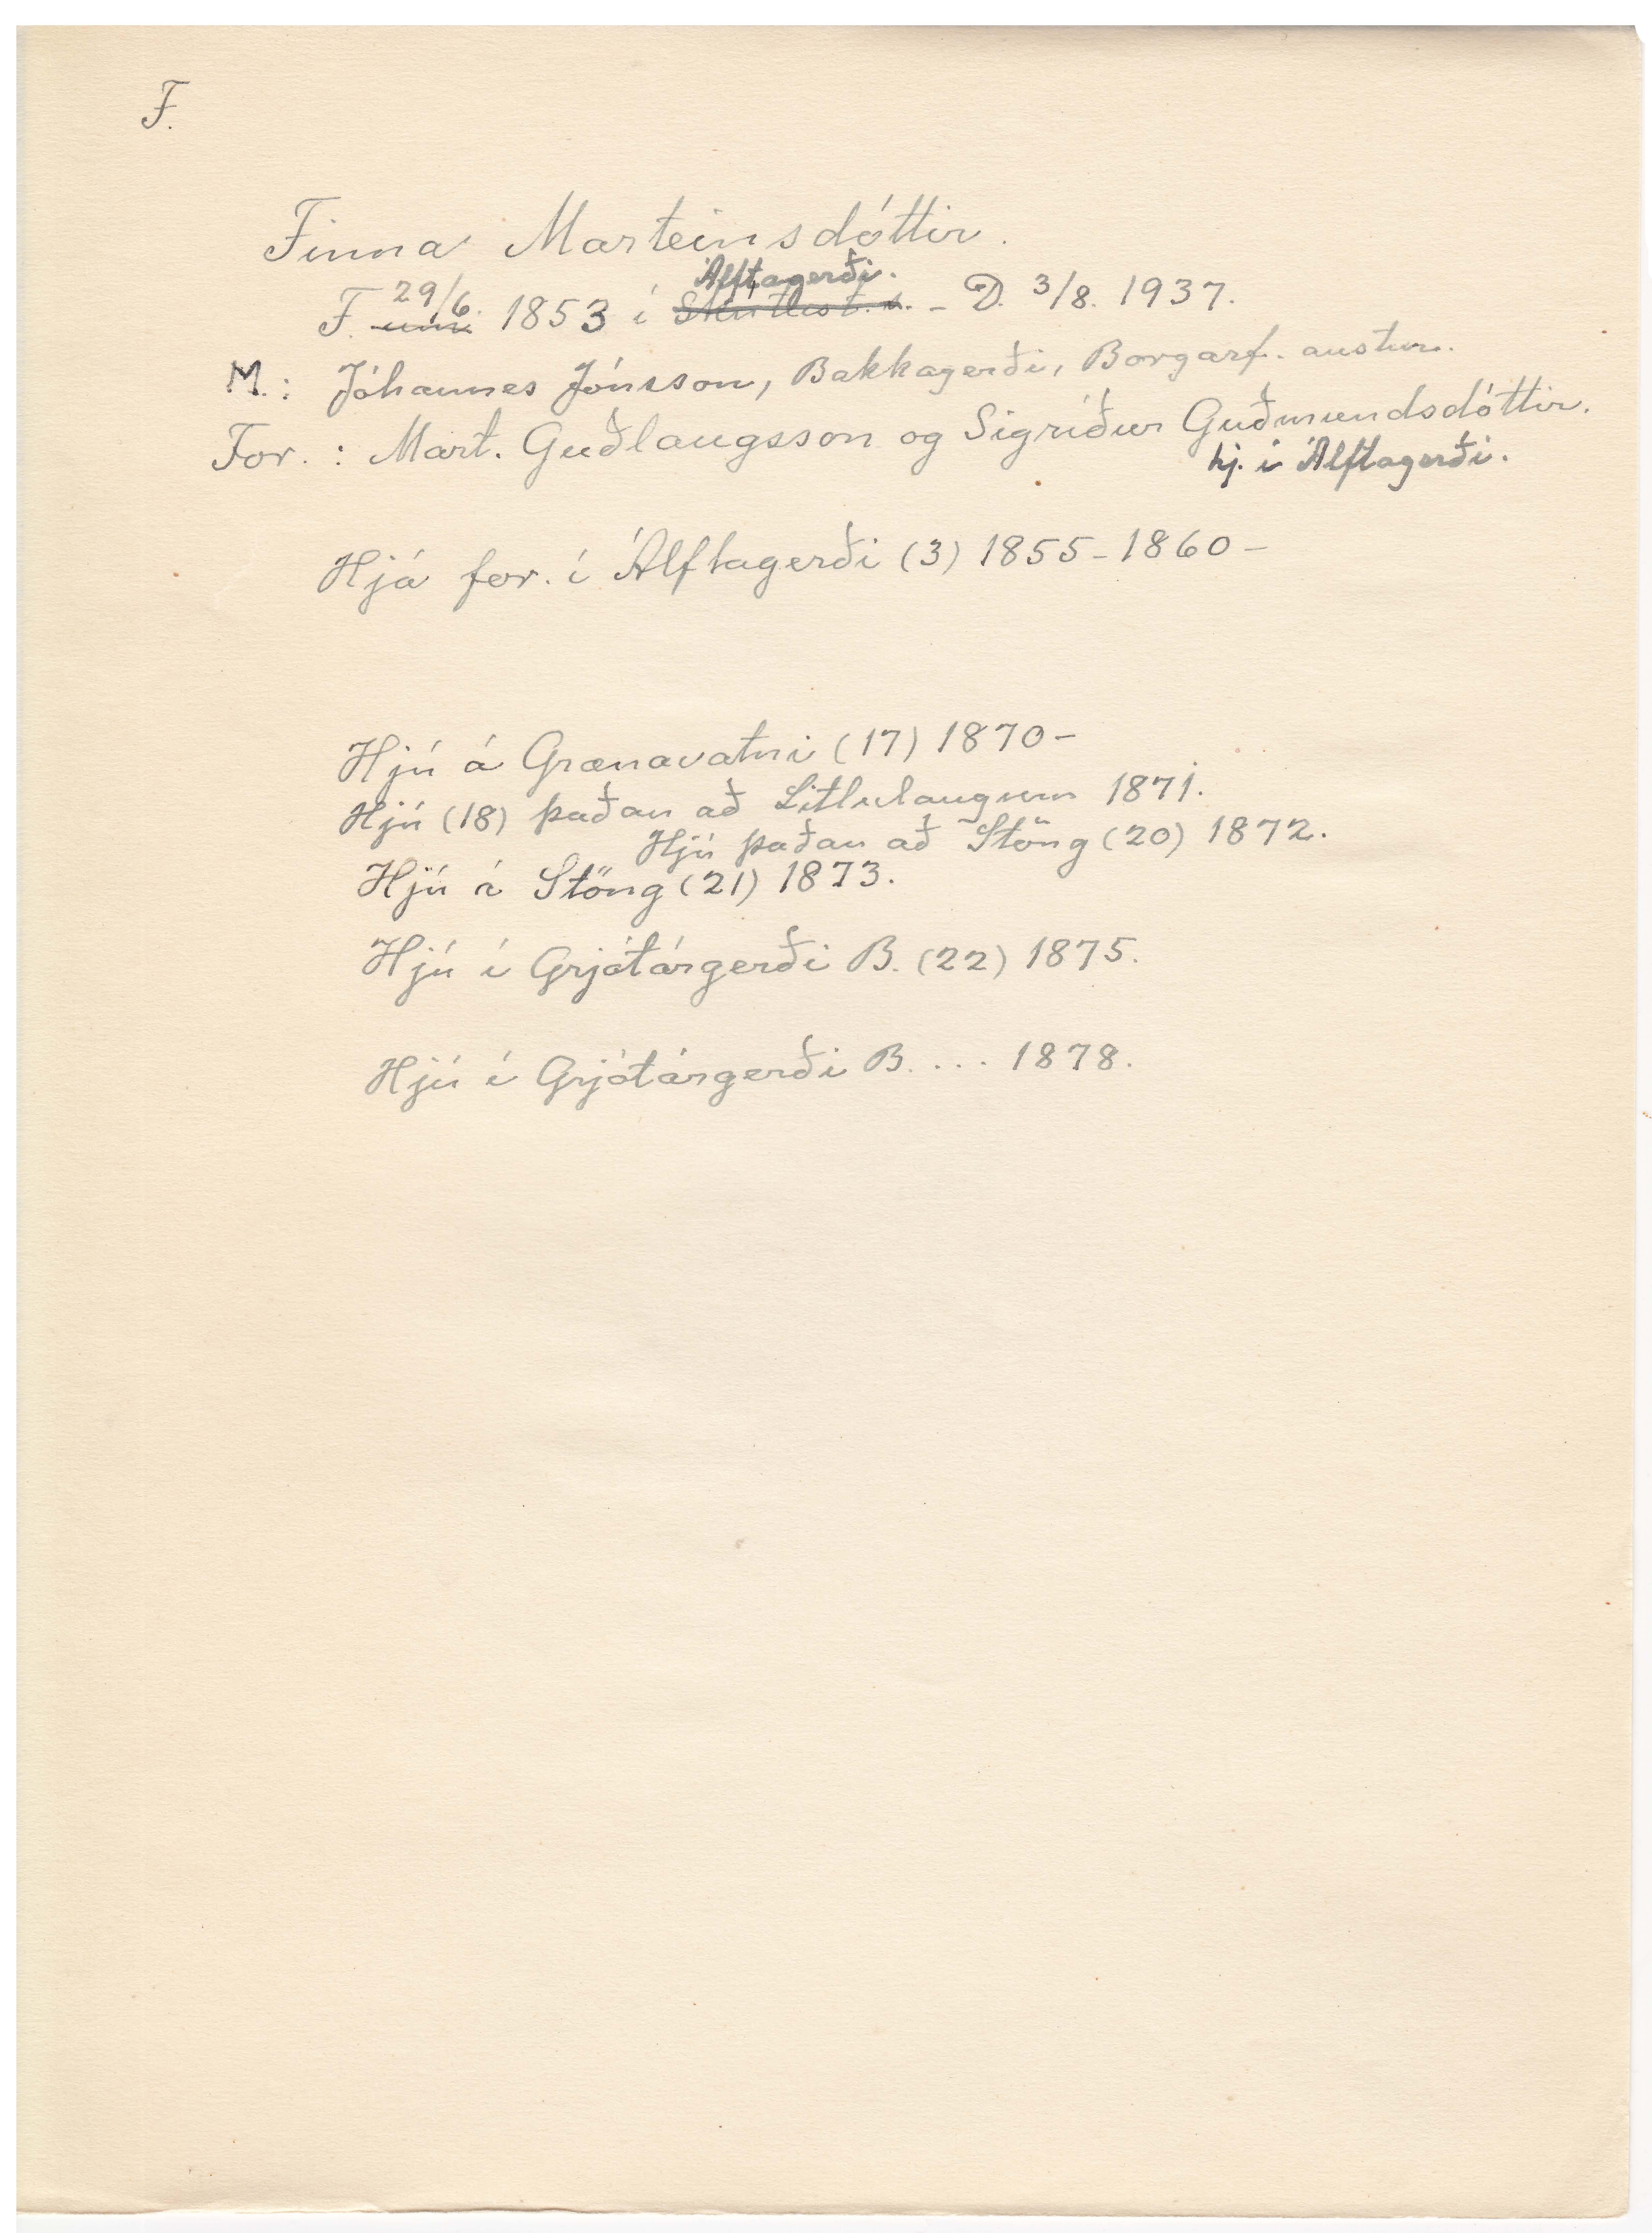 F.
Finna Marteinsdóttir.
Álftagerði.
F. 29/6. 1853 í Skútust.s. - D. 3/8. 1937.
M.: Jóhannes Jónsson, Bakkagerði, Borgarf. austur.
For.: Mart. Guðlaugsson og Sigríður Guðmundsdóttir.
hj. í Álftagerði.
Hjá for. í Álftagerði (3) 1855-1860-
Hjú á Grænavatni (17) 1870-
Hjú (18) þaðan að Litlulaugum 1871.
Hjú þaðan að Stöng (20) 1872.
Hjú á Stöng (21) 1873.
Hjú í Grjótárgerði B. (22) 1875.
Hjú í Grjótárgerði B. ... 1878.